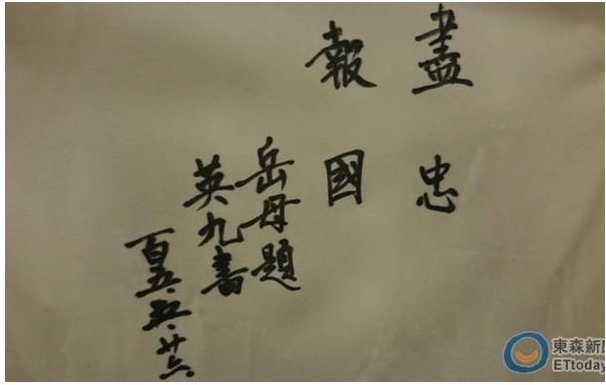 盡忠
報國
岳母題
英九書
百五.五.廿六
東森新
ETtoday